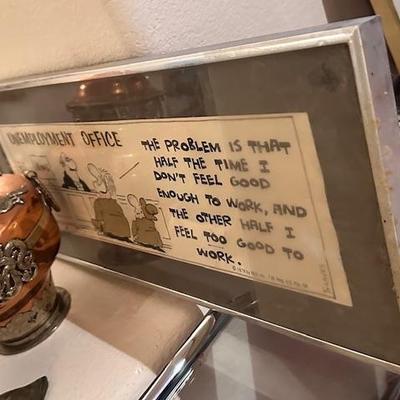 UNEMPLOYMENT OFFICE
THE PROBLEM IS THAT
HALF THE TIME I
DON'T FEEL GOOD
ENOUGH TO WORK, AND
THE OTHER HALF I
FEEL TOO GOOD TO
WORK.